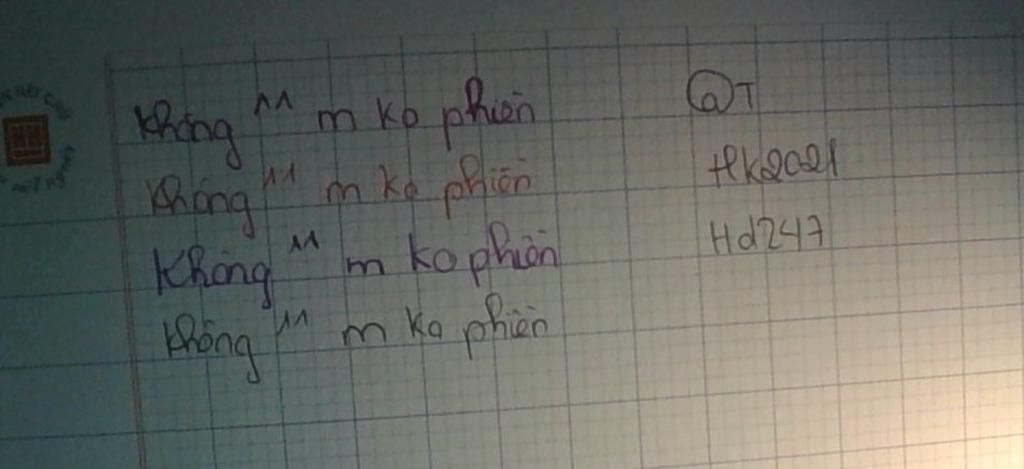 Không ^^ m ko phiền
Không ^^ m ko phiền
Không ^^ m ko phiền
Không ^^ m ko phiền
@T
Hk2021
Hd247